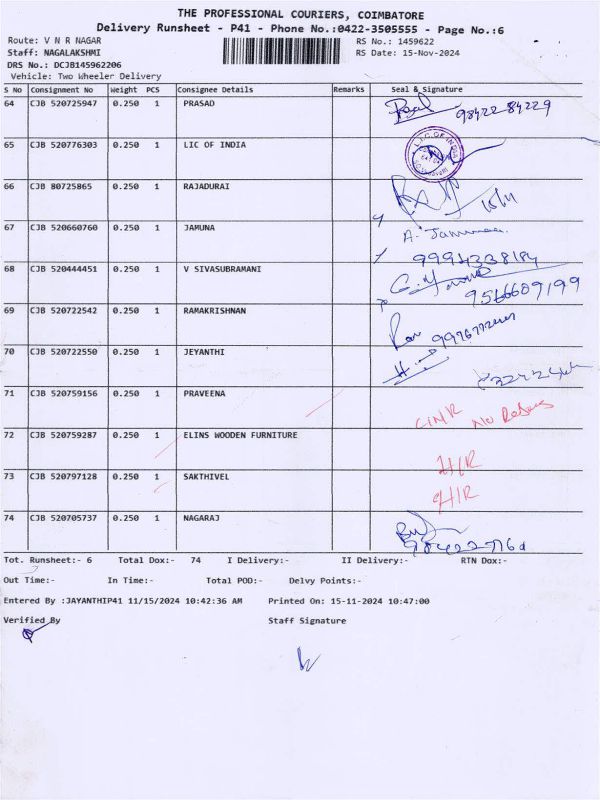 THE PROFESSIONAL COURIERS, COIMBATORE
Delivery Runsheet - P41 - Phone No.:0422-3505555 - Page No.:6
Route: V N R NAGAR RS No.: 1459622
Staff: NAGALAKSHMI RS Date: 15-Nov-2024
DRS No.: DCJB145962206
Vehicle: Two Wheeler Delivery
S No Consignment No Weight PCS Consignee Details Remarks Seal & Signature
64 CJB 520725947 0.250 1 PRASAD 98422 84229
65 CJB 520776303 0.250 1 LIC OF INDIA L.I.C. OF INDIA
66 CJB 80725865 0.250 1 RAJADURAI 15/11
67 CJB 520660760 0.250 1 JAMUNA A. Jamunaa
68 CJB 520444451 0.250 1 V SIVASUBRAMANI 9566609199
69 CJB 520722542 0.250 1 RAMAKRISHNAN
70 CJB 520722550 0.250 1 JEYANTHI
71 CJB 520759156 0.250 1 PRAVEENA No
72 CJB 520759287 0.250 1 ELINS WOODEN FURNITURE H/R
73 CJB 520797128 0.250 1 SAKTHIVEL H/R
74 CJB 520705737 0.250 1 NAGARAJ
Tot. Runsheet:- 6 Total Dox:- 74 I Delivery:- II Delivery:- RTN Dox:-
Out Time:- In Time:- Total POD:- Delvy Points:-
Entered By :JAYANTHIP41 11/15/2024 10:42:36 AM Printed On: 15-11-2024 10:47:00
Verified By Staff Signature